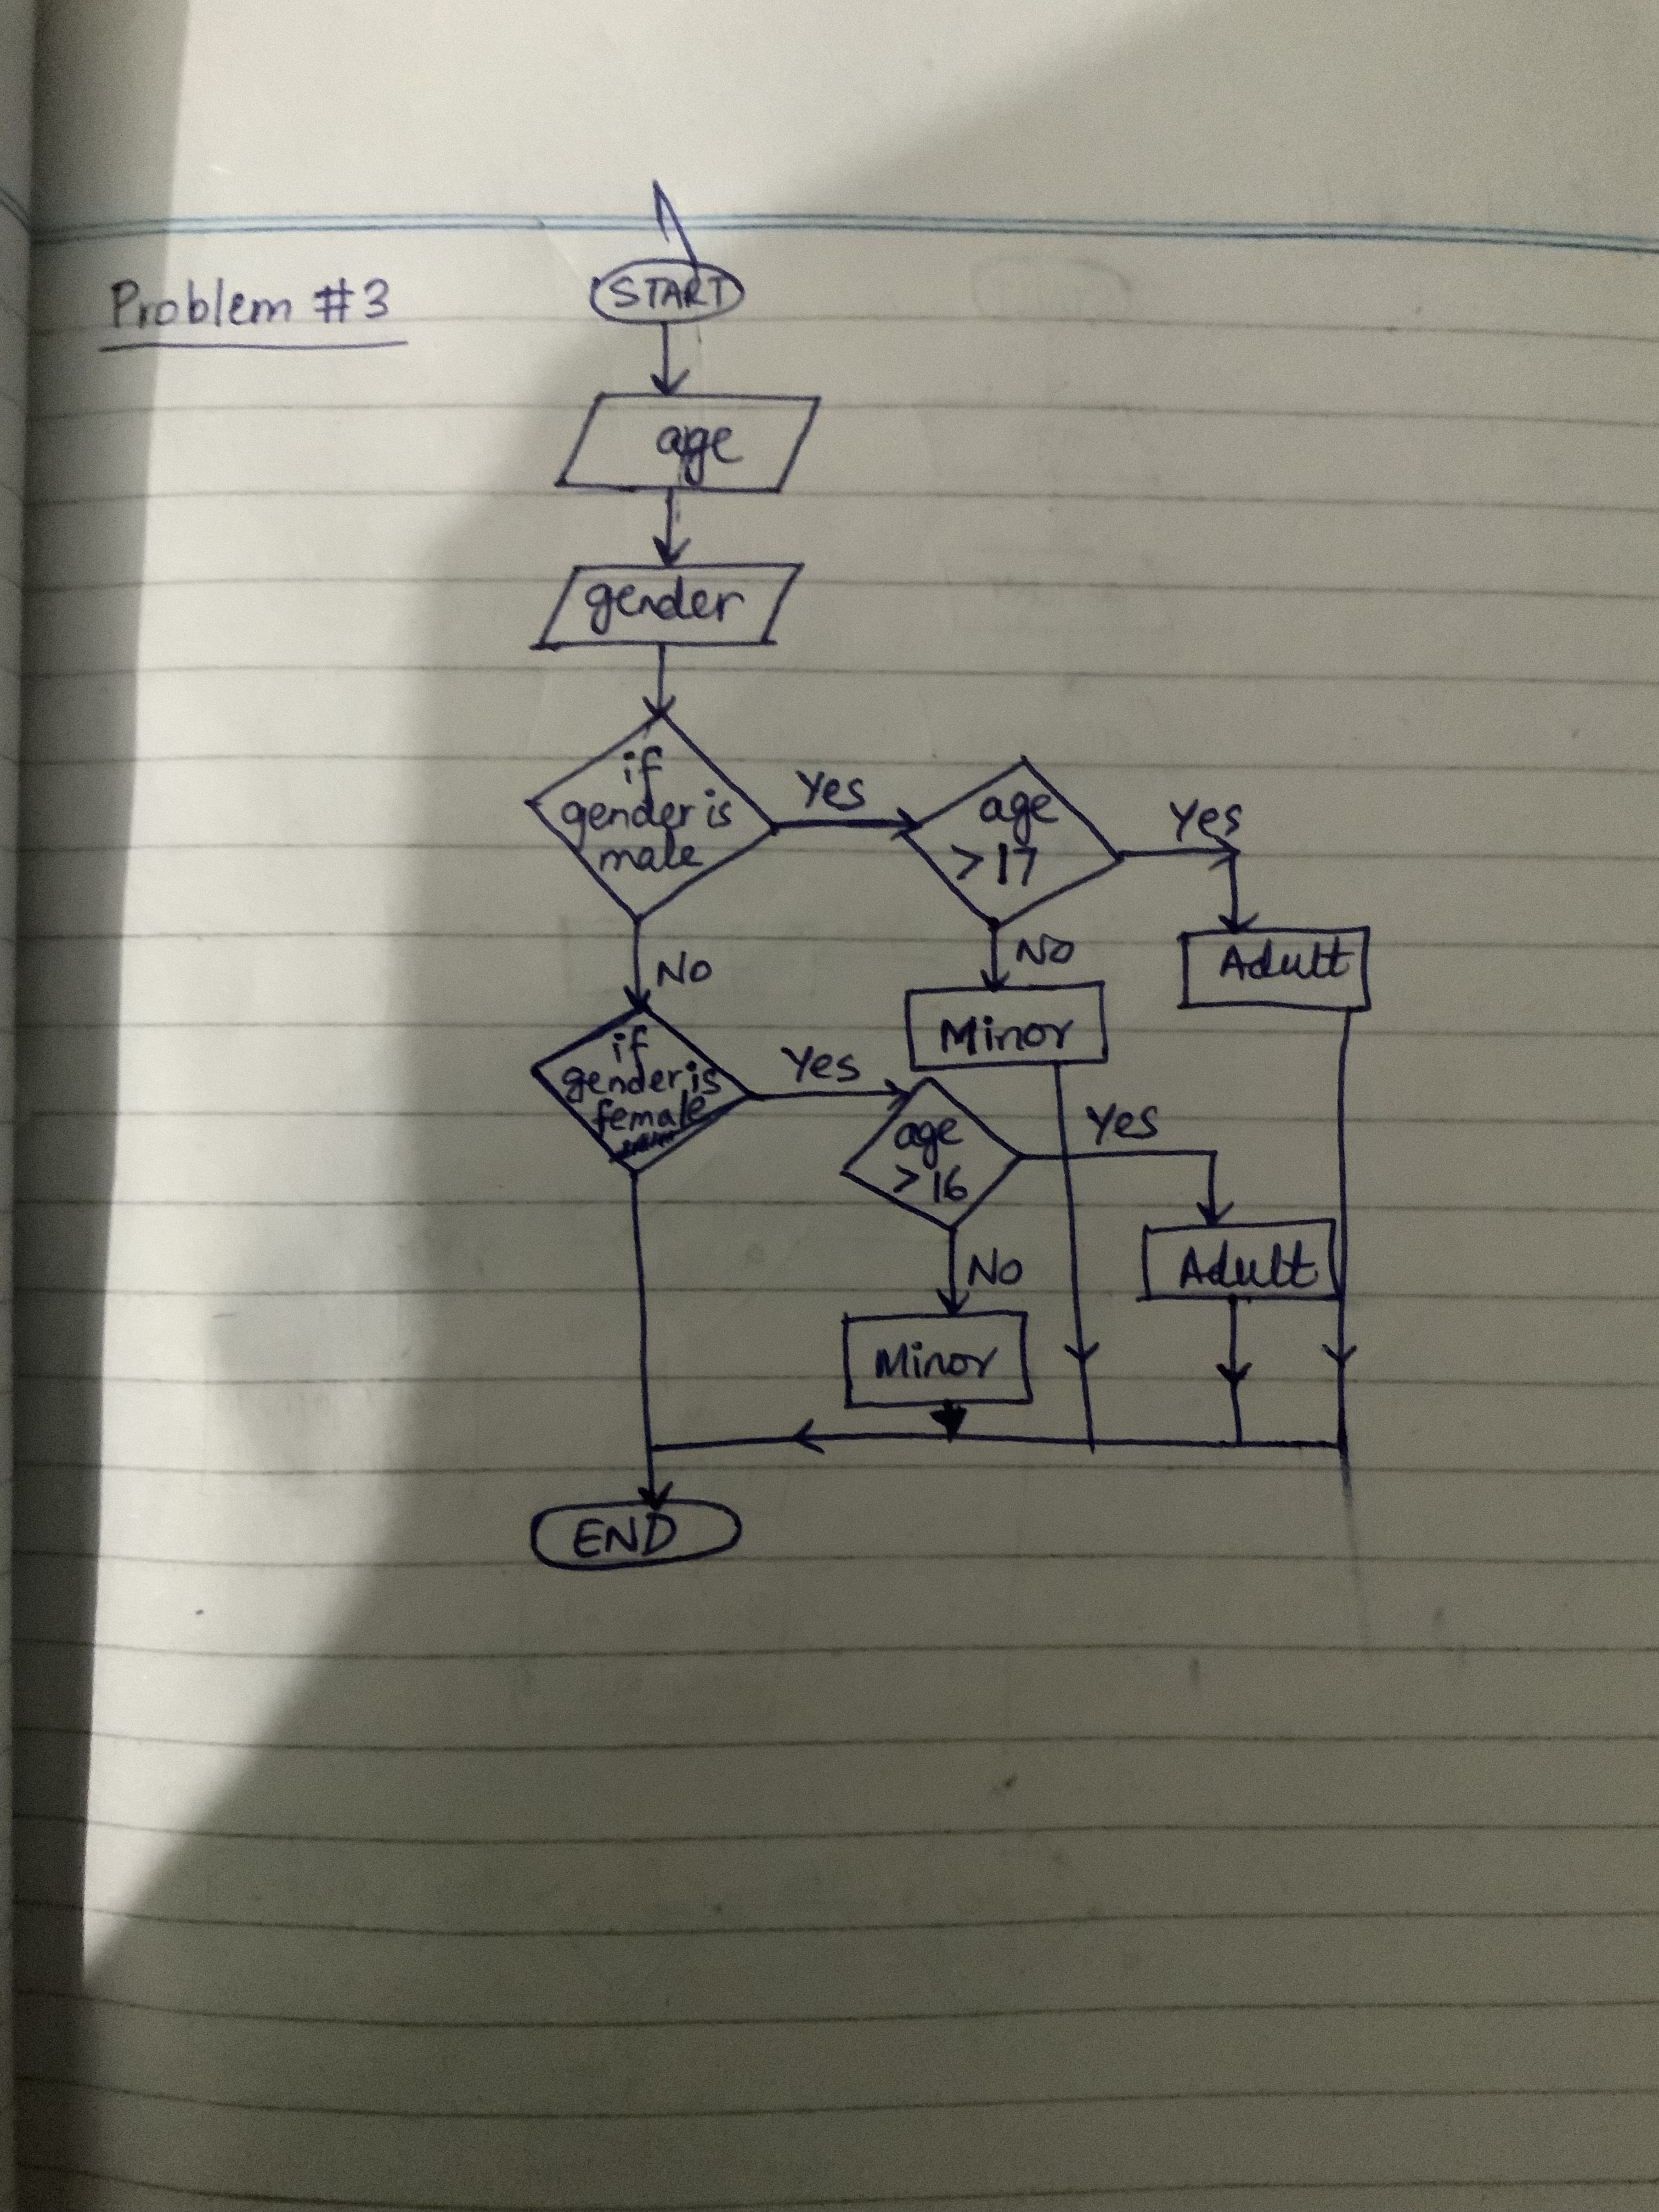 Problem #3
START
age
gender
if
gender is
male
Yes
age
>17
Yes
Adult
No
Minor
No
if
gender is
female
Yes
age
>16
Yes
Adult
No
Minor
END